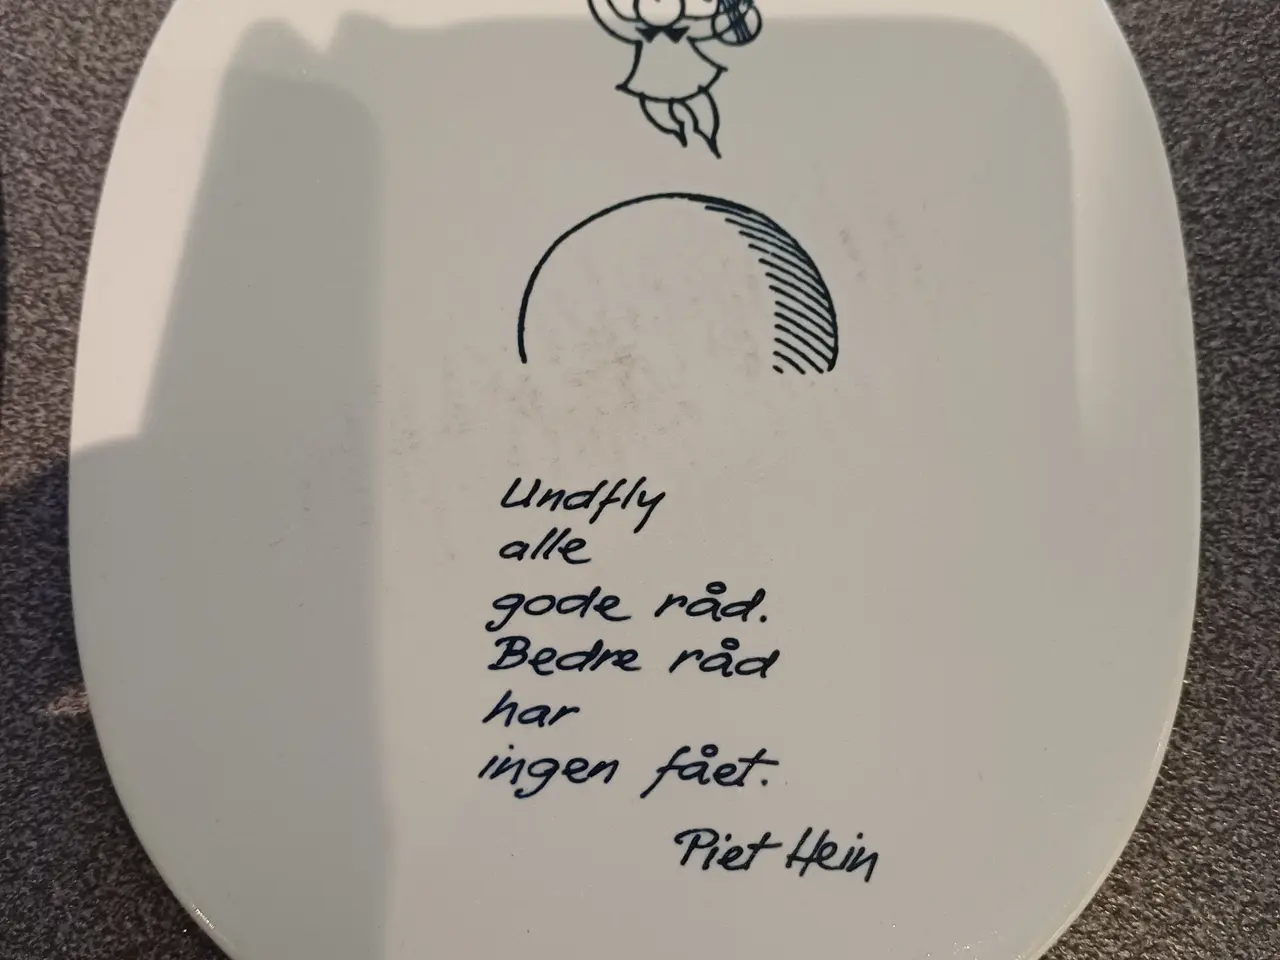 Undfly
alle
gode råd.
Bedre råd
har
ingen fået.
Piet Hein